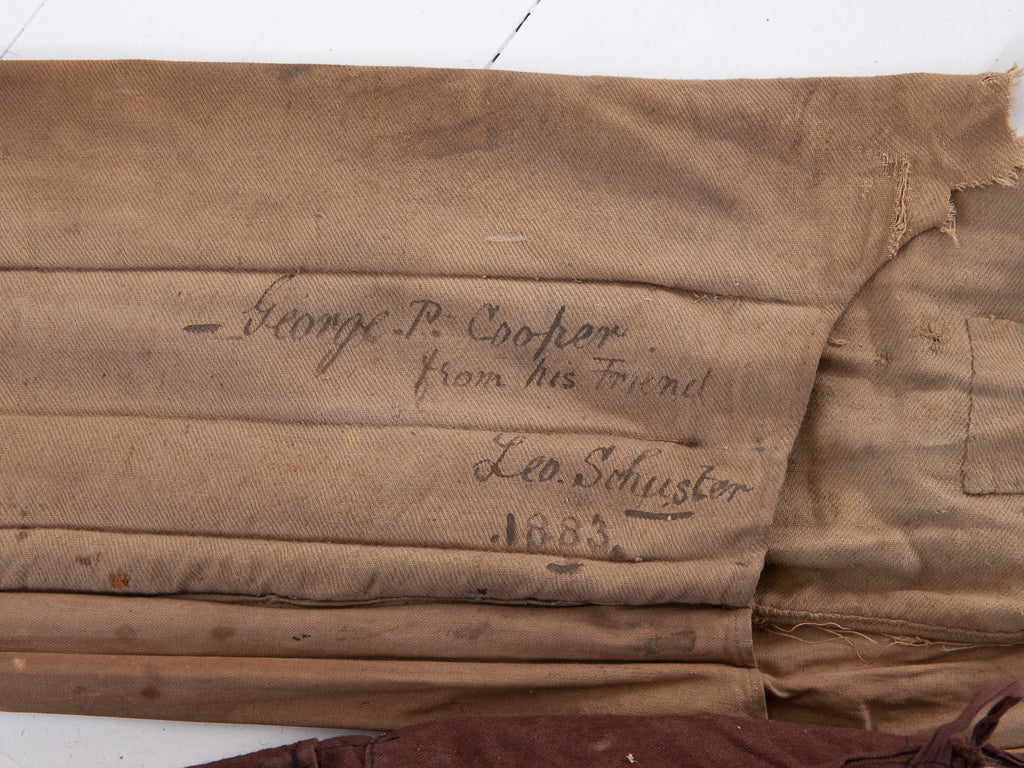 – George. P. Cooper.
from his Friend
Leo. Schuster
.1883.